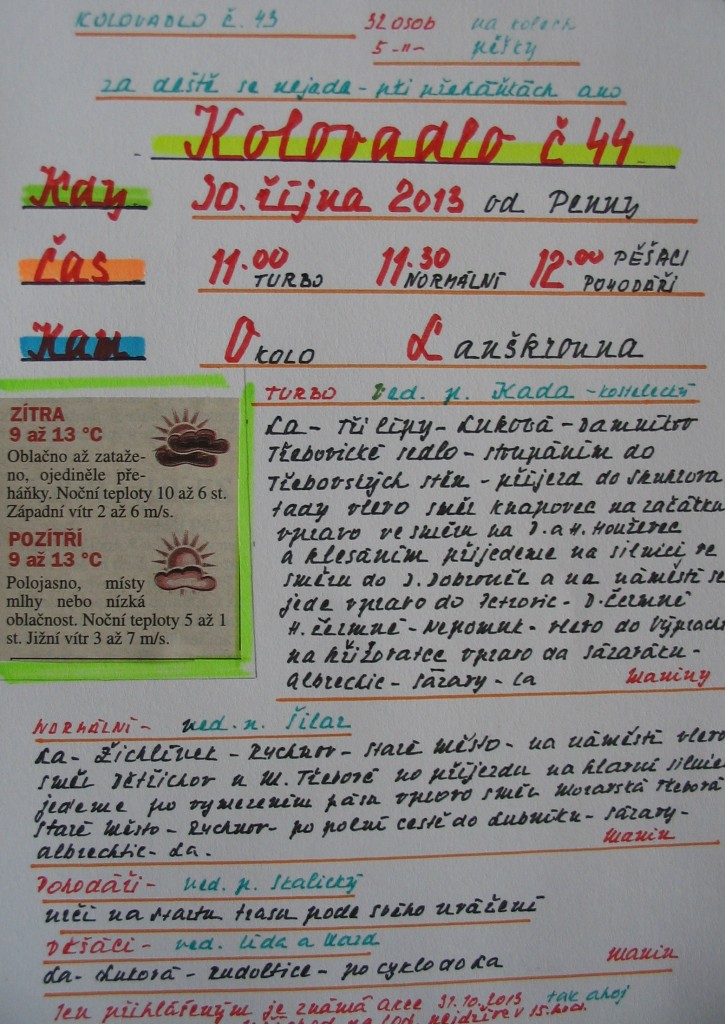 KOLOVADLO Č. 43 32 OSOB na kolech
5 -"- pěšky
za deště se nejede - při přeháňkách ano
Kolovadlo č 44
Kdy 30. října 2013 od Penny
Čas 11.00 TURBO 11.30 NORMÁLNÍ 12.00 PĚŠÁCI POHODÁŘI
Kam Okolo Lanškrouna
ZÍTRA
9 až 13 °C
Oblačno až zataže-
no, ojediněle pře-
háňky. Noční teploty 10 až 6 st.
Západní vítr 2 až 6 m/s.
POZÍTŘÍ
9 až 13 °C
Polojasno, místy
mlhy nebo nízká
oblačnost. Noční teploty 5 až 1
st. Jižní vítr 3 až 7 m/s.
TURBO ved. p. Kada - kostelecký
La - Tři lípy - Luková - Damníkov
Třebovické sedlo - stoupáním do
Třebovských stěn - příjezd do Skuhrova
tady vlevo směr Knapovec na začátku
vpravo ve směru na D. a H. Houžovec
a klesáním přijedeme na silnici ve
směru do D. Dobrouče a na náměstí se
jede vpravo do Petrovic - D. Čermné
H. Čermné - Nepomuk - vlevo do Výprachtic
na křižovatce vpravo do
Albrechtic - Sázavy - La Maniny
NORMÁLNÍ - ved. p. Šilar
La - Žichlínek - Rychnov - Staré Město - na náměstí vlevo
směr Dětřichov u M. Třebové po příjezdu na hlavní silnici
jedeme po vymezeném pásu vpravo směr Moravská Třebová
Staré Město - Rychnov - po polní cestě do Lubníku - Sázavy -
Albrechtic - La. Manin
Pohodáři - ved. p. Skalický
určí na startu trasu pode svého uvážení
PĚŠÁCI - ved. Lída a
La - Luková - Rudoltice - po cyklo do La Manin
Jen přihlášeným je známá akce 31.10.2013 tak ahoj
na nejdříve v 15.hod.